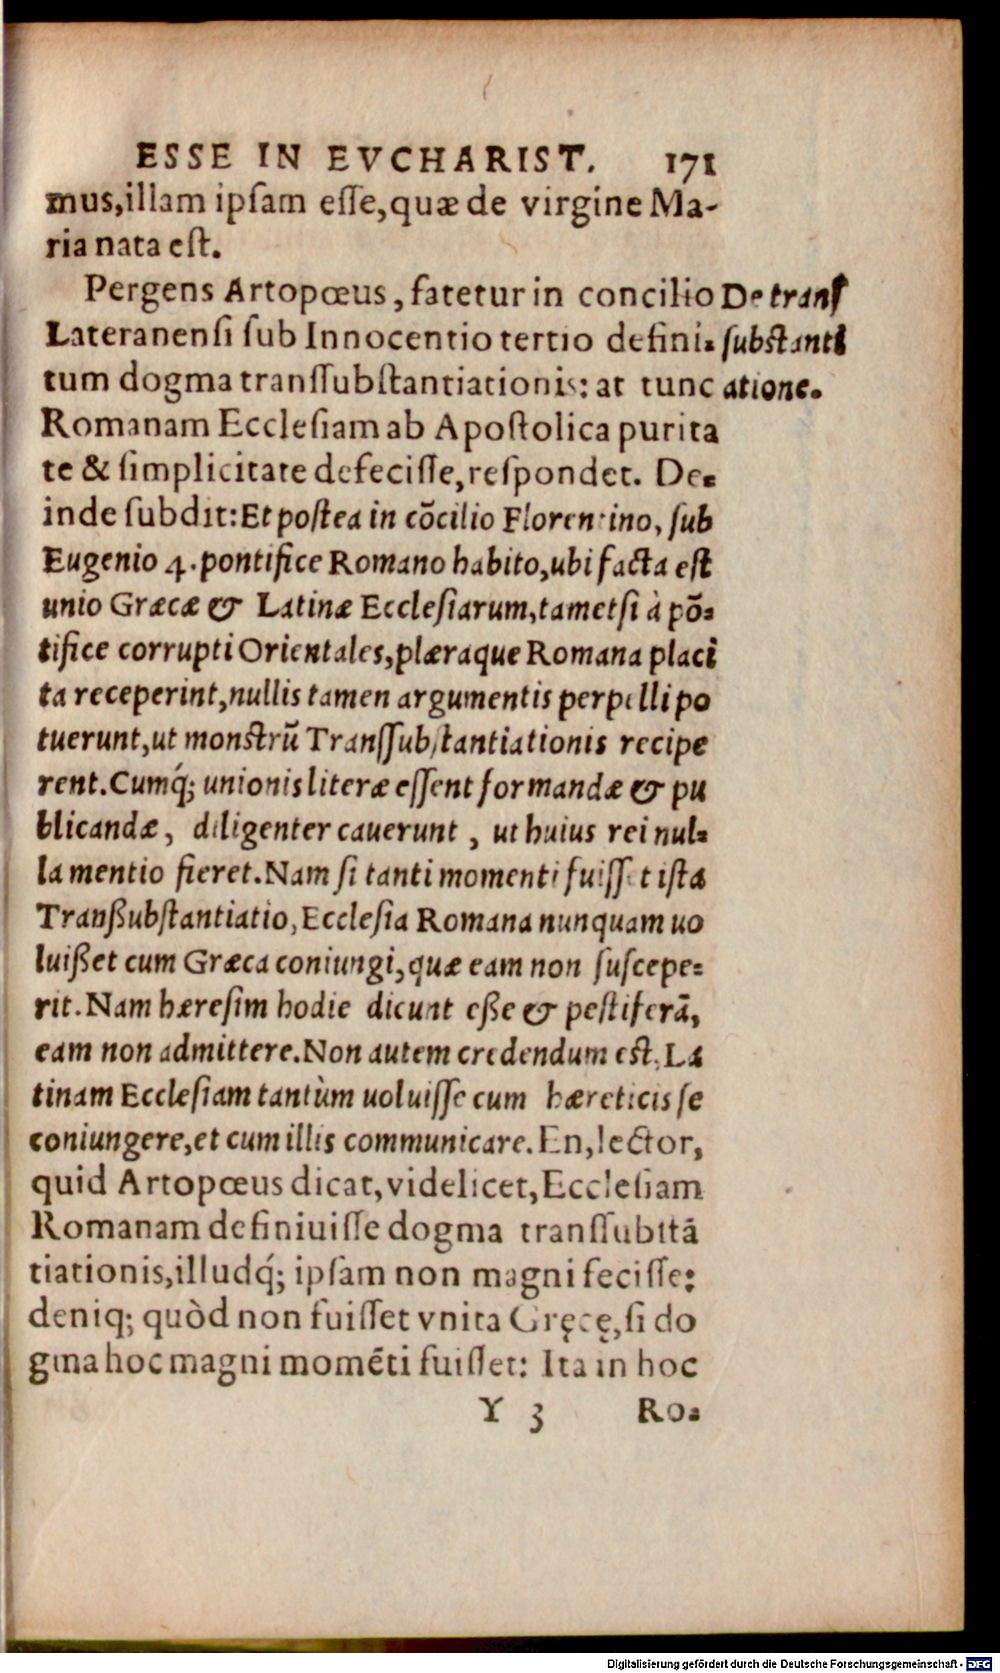 ESSE IN EVCHARIST. 171
mus,illam ipſam eſſe,quæ de virgine Ma-
ria nata eſt.
Pergens Artopœus, fatetur in concilio
De tranſ
Lateranenſi ſub Innocentio tertio defini-
ſubſtanti
tum dogma tranſſubſtantiationis: at tunc
atione.
Romanam Eccleſiam ab Apoſtolica purita
te & ſimplicitate defeciſſe,reſpondet. De-
inde ſubdit: Et poſtea in cōcilio Florentino, ſub
Eugenio 4. pontifice Romano habito,ubi facta eſt
unio Græcæ & Latinæ Eccleſiarum,tametſi à pō-
tifice corrupti Orientales,plæraque Romana placi
ta receperint,nullis tamen argumentis perpelli po
tuerunt,ut monſtrũ Tranſſubſtantiationis recipe
rent.Cumq́; unionis literæ eſſent formandæ & pu
blicandæ, diligenter cauerunt, ut huius rei nul-
la mentio fieret.Nam ſi tanti momenti fuiſſet iſta
Tranßubſtantiatio,Eccleſia Romana nunquam uo
luißet cum Græca coniungi,quæ eam non ſuſcepe-
rit.Nam hæreſim hodie dicunt eße & peſtiferā,
eam non admittere.Non autem credendum eſt, La
tinam Eccleſiam tantùm uoluiſſe cum hæreticis ſe
coniungere,et cum illis communicare. En,lector,
quid Artopœus dicat,videlicet,Eccleſiam
Romanam definiuiſſe dogma tranſſubſtã
tiationis,illudq́; ipſam non magni feciſſe:
deniq; quòd non fuiſſet vnita Gręcę,ſi do
gma hoc magni momẽti fuiſſet: Ita in hoc
Y 3 Ro-
Digitalisierung gefördert durch die Deutsche Forschungsgemeinschaft - DFG